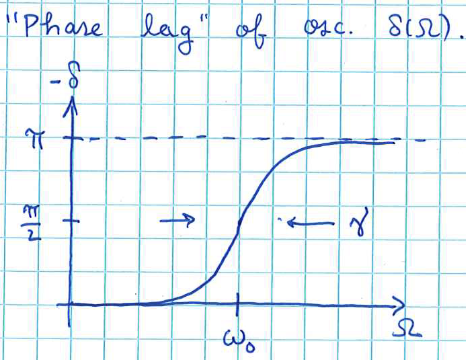 "Phase lag" of osc. δ(Ω).
-δ
π
π/2
γ
ω₀
Ω